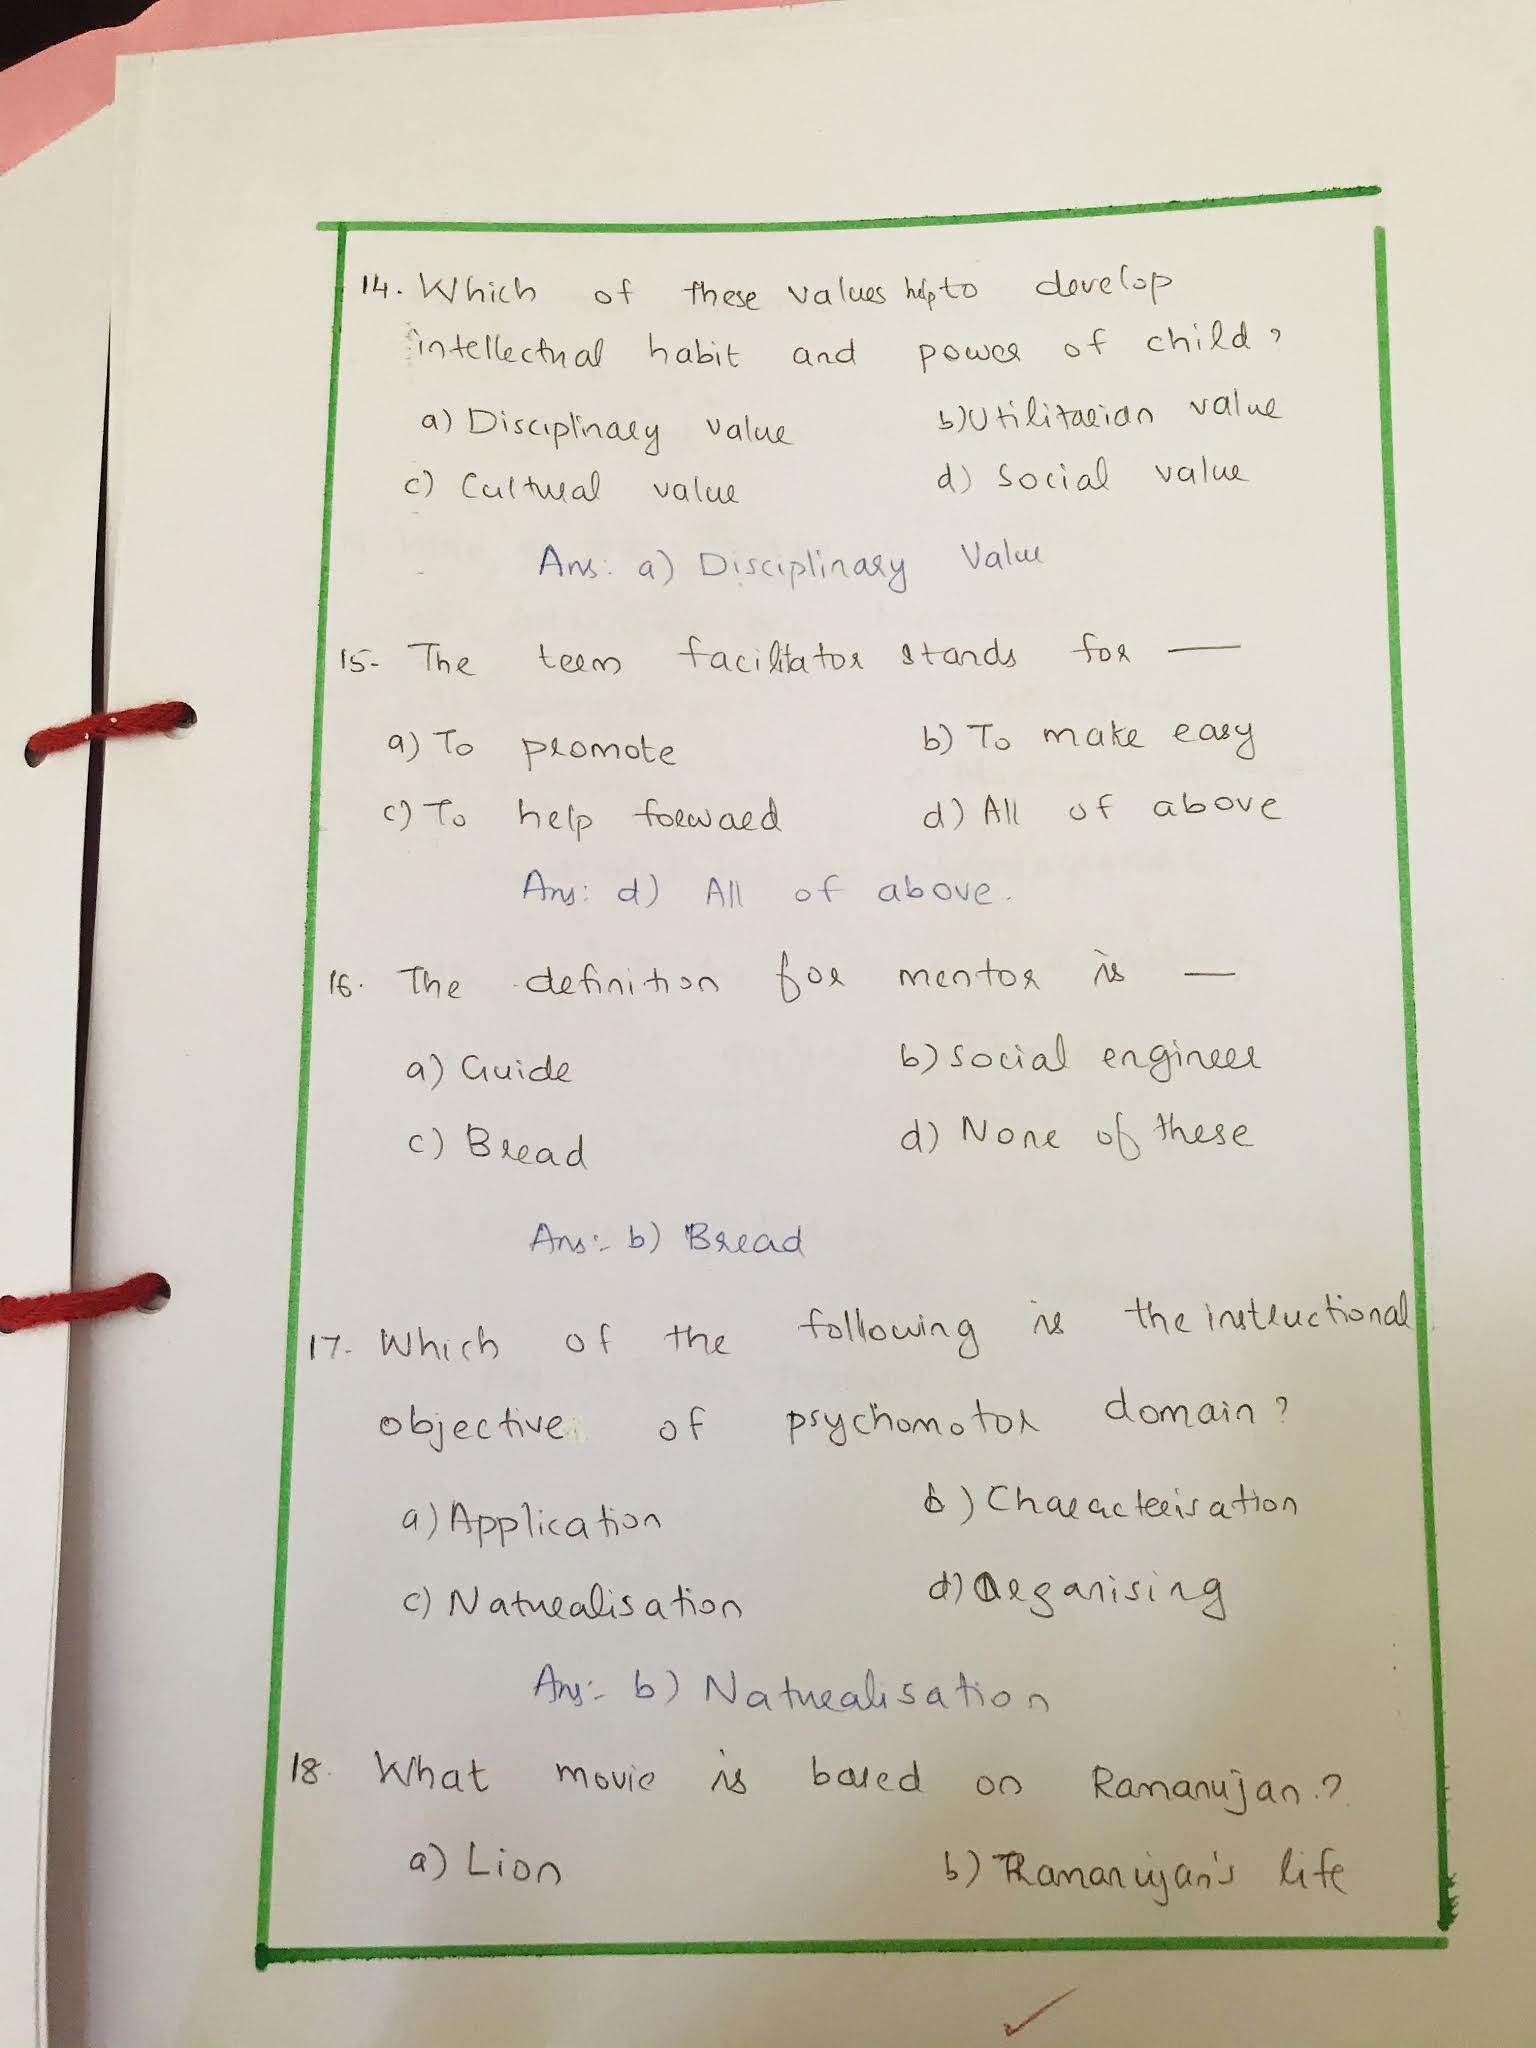 14. Which of these values help to develop
intellectual habit and power of child?
a) Disciplinary value b) Utilitarian value
c) Cultural value d) Social value
Ans: a) Disciplinary Value
15- The term facilitator stands for —
a) To promote b) To make easy
c) To help forward d) All of above
Ans: d) All of above.
16. The definition for mentor is —
a) Guide b) Social engineer
c) Bread d) None of these
Ans:- b) Bread
17- Which of the following is the instructional
objective of psychomotor domain?
a) Application b) Characterisation
c) Naturalisation d) Organising
Ans:- b) Naturalisation
18. What movie is based on Ramanujan.?
a) Lion b) Ramanujan's life